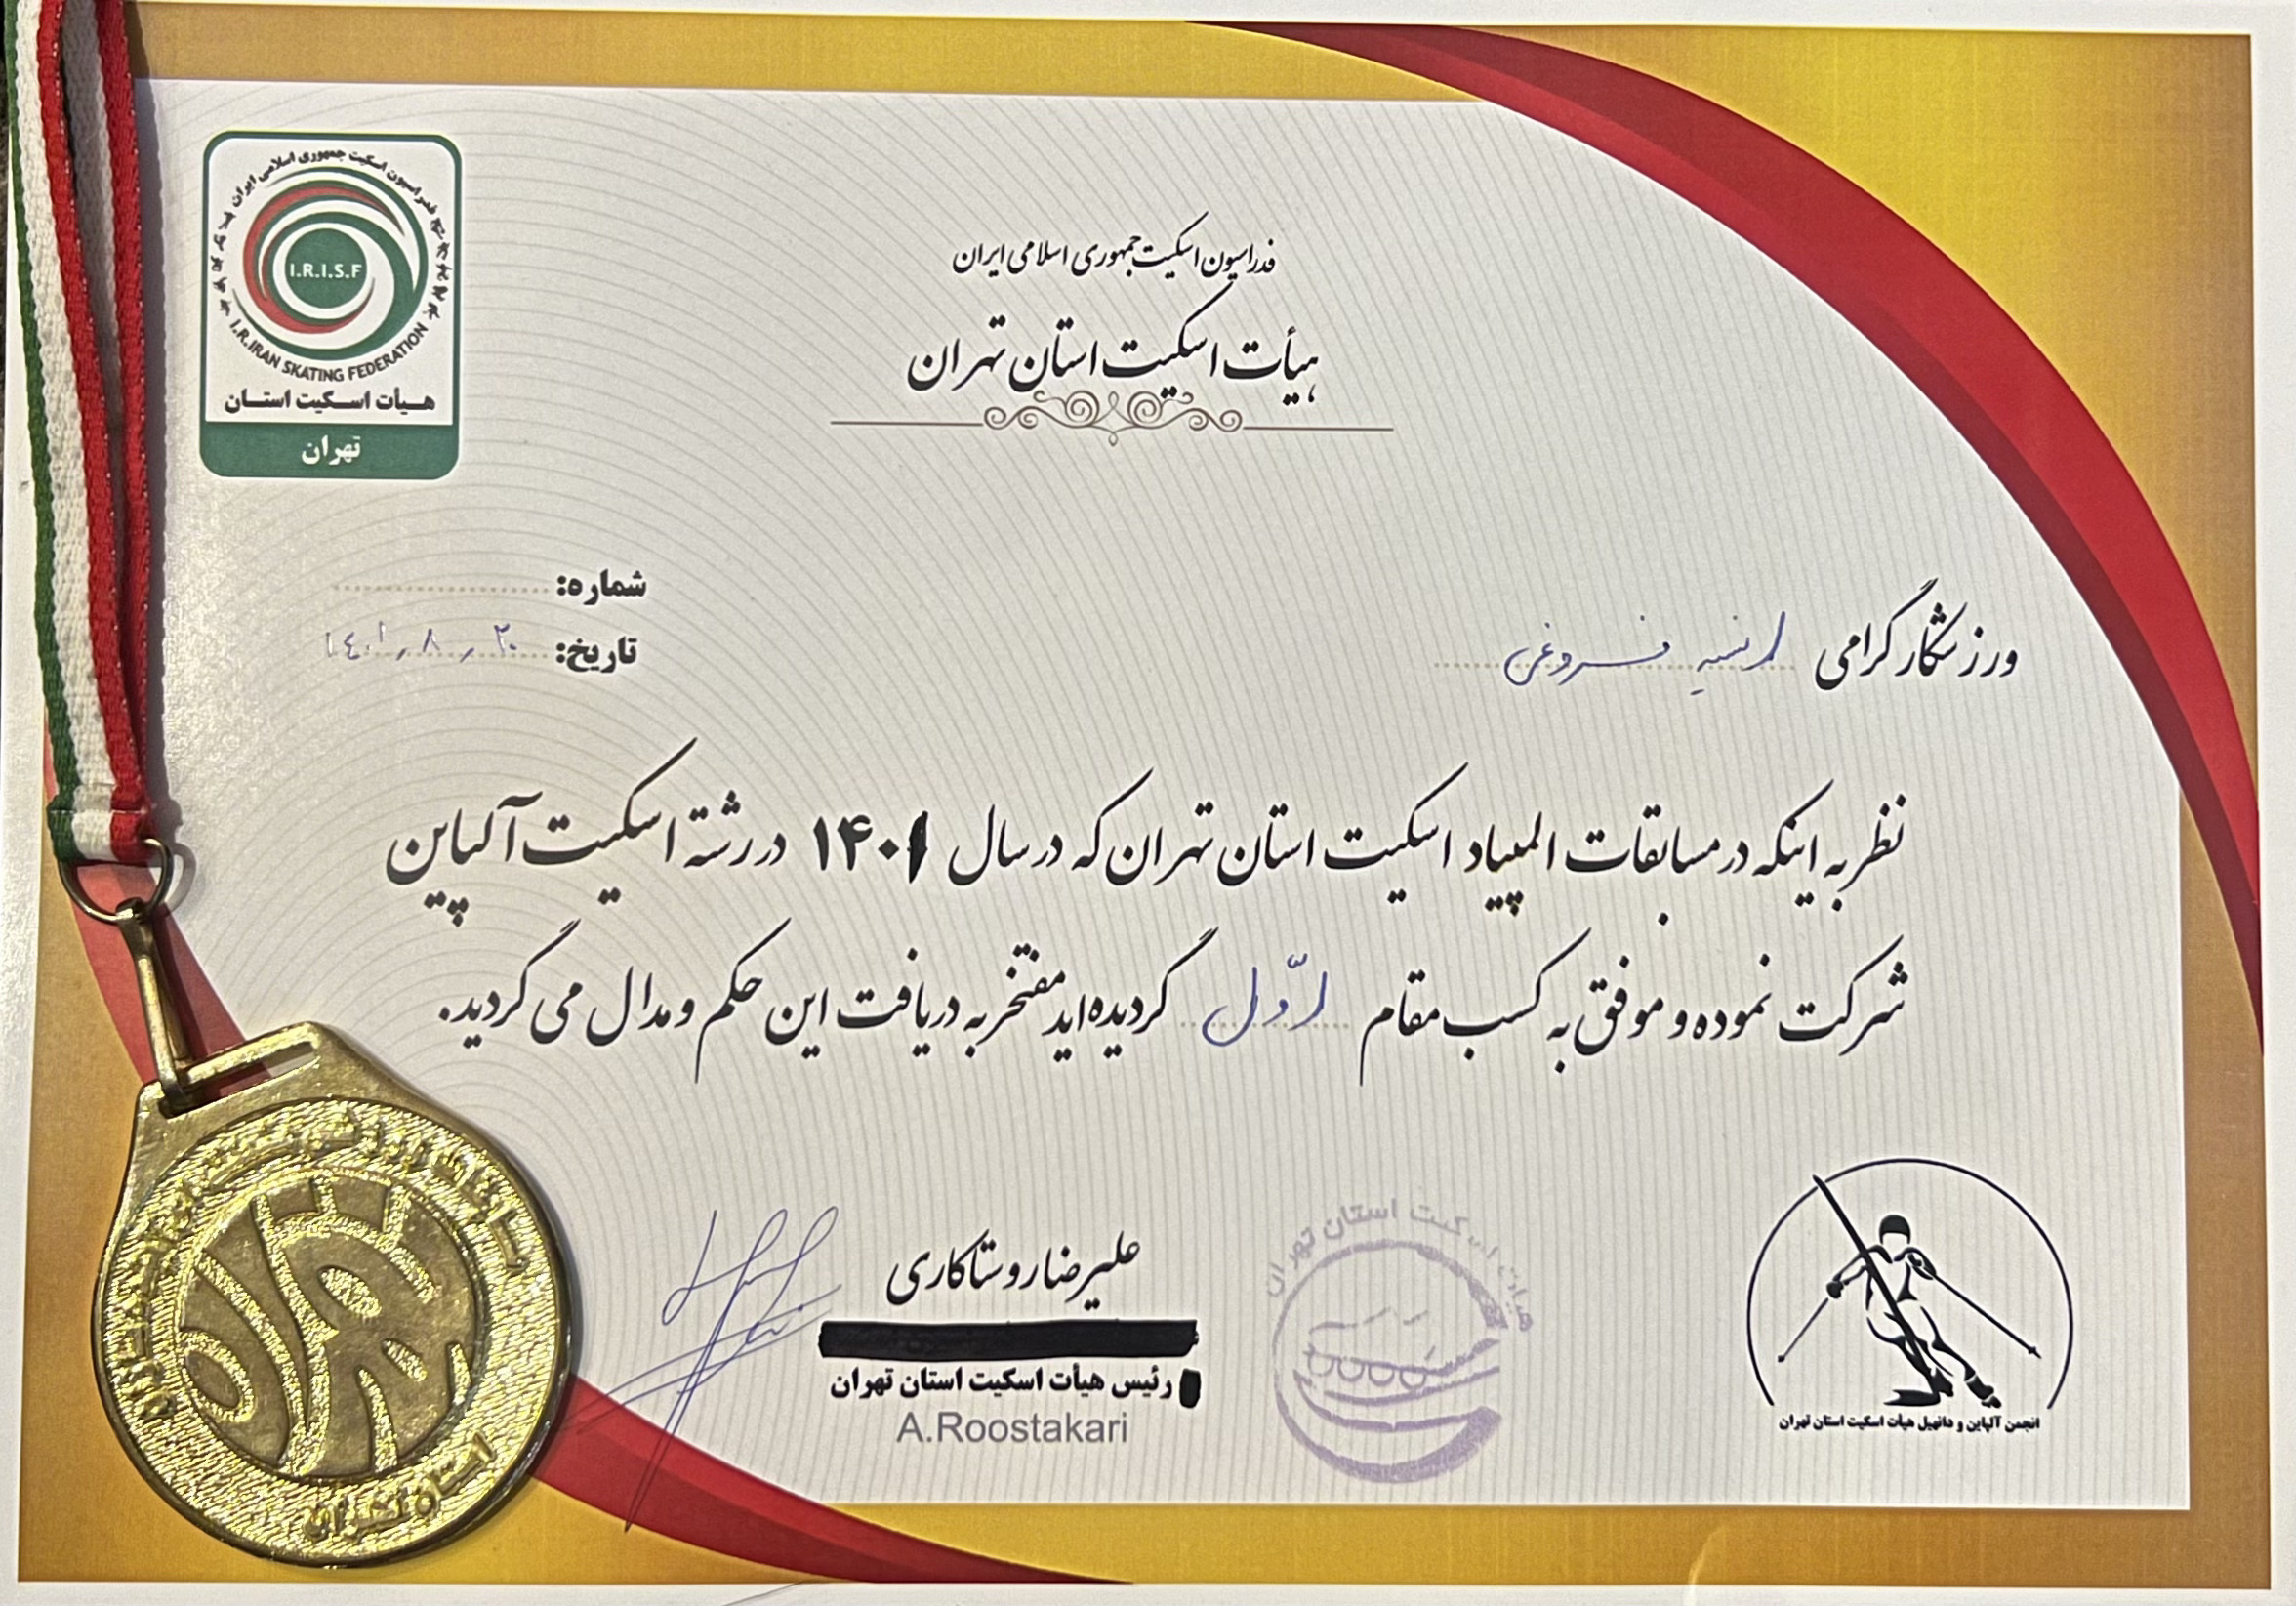 فدراسیون اسکیت جمهوری اسلامی ایران
I.R.I.S.F
I.R.IRAN SKATING FEDERATION
هیأت اسکیت استان
تهران
فدراسیون اسکیت جمهوری اسلامی ایران
هیأت اسکیت استان تهران
شماره:
تاریخ: ۱۴۰۱٫۸٫۲۰
ورزشکار گرامی انسیه فروغی
نظر به اینکه در مسابقات المپیاد اسکیت استان تهران که در سال ۱۴۰۱ در رشته اسکیت آلپاین
شرکت نموده و موفق به کسب مقام اوّل گردیده اید مفتخر به دریافت این حکم و مدال می گردید.
علیرضا روستاکاری
رئیس هیأت اسکیت استان تهران
A.Roostakari
هیات اسکیت استان تهران
انجمن آلپاین و دانهیل هیأت اسکیت استان تهران
استان تهران